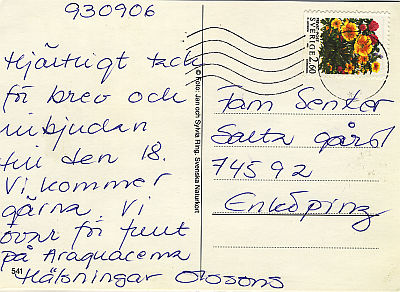 930906
Hjärtligt tack
för brev och
inbjudan
till den 18.
Vi kommer
gärna. Vi
övar för fullt
på Araguacema
Hälsningar Olssons
541
© Foto: Jan och Sylvia Ring, Svenska Naturkort
SVERIGE 2.60
Fam Senter
Salta gård
745 92
Enköping